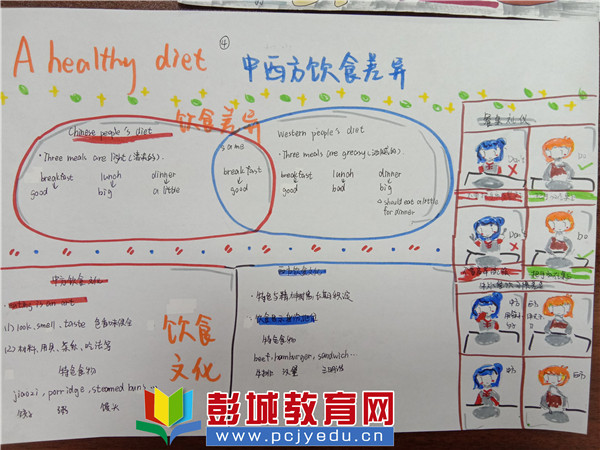 A healthy diet
④
中西方饮食差异
饮食差异
Chinese people's diet
• Three meals are light (清淡的).
breakfast lunch dinner
good big a little
same
breakfast
good
Western people's diet
• Three meals are greasy (油腻的).
breakfast lunch dinner
good bad big
△ should eat a little
for dinner
Don't
Do
Don't
Do
中方饮食文化
eating is an art
(1) look, smell, taste 色香味俱全
特色食物
jiaozi, porridge, steamed buns...
饺子 粥 馒头
饮食
文化
特色食物
beef, hamburger, sandwich...
牛排 汉堡 三明治
中方
西方
中方
西方
彭城教育网
www.pcjyedu.cn